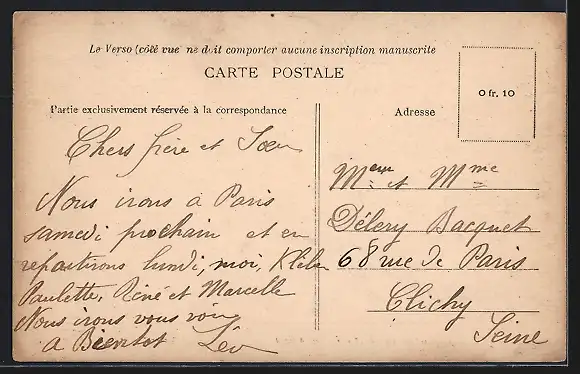 Le Verso (côté vue ne doit comporter aucune inscription manuscrite
CARTE POSTALE
0 fr. 10
Partie exclusivement réservée à la correspondance
Adresse
Chers frère et Sœur
Nous irons à Paris
samedi prochain et en
repartirons lundi, moi,
Paulette, Réné et Marcelle
Nous irons vous voir
a Bientot Léo
Meur et Mme
Délery Bacquet
68 rue de Paris
Clichy
Seine